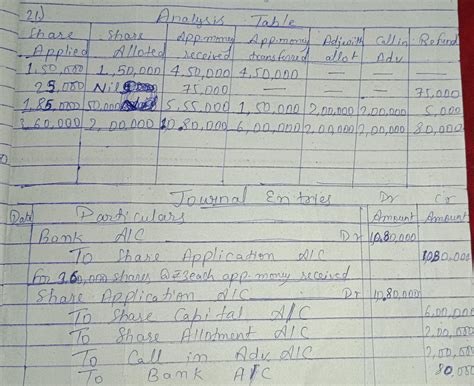 21) Analysis Table
Share Share App.money App.money Adj with Call in Refund
Applied Alloted received transferred allot Adv
1,50,000 1,50,000 4,50,000 4,50,000 — — —
25,000 Nil 75,000 — — — 75,000
1,85,000 50,000 5,55,000 1,50,000 2,00,000 2,00,000 5,000
3,60,000 2,00,000 10,80,000 6,00,000 2,00,000 2,00,000 80,000
Journal Entries Dr Cr
Date Particulars Amount Amount
Bank A/C Dr 10,80,000
To Share Application A/C 10,80,000
For 3,60,000 shares @ ₹3each app.money received
Share Application A/C Dr 10,80,000
To Share Capital A/C 6,00,000
To Share Allotment A/C 2,00,000
To Call in Adv A/C 2,00,000
To Bank A/C 80,000